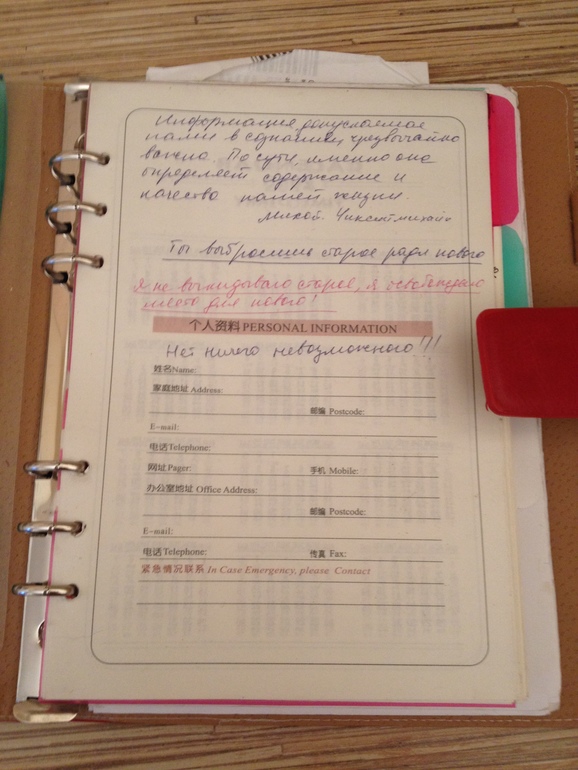 Информация, допускаемая
нами в сознание, чрезвычайно
важна. По сути, именно она
определяет содержание и
качество нашей жизни.
Михой. Чиксентмихайи
Ты выбросишь старое ради нового
Я не выкидываю старое, я освобождаю
место для нового!
个人资料 PERSONAL INFORMATION
Нет ничего невозможного!!!
姓名Name:
家庭地址 Address:
邮编 Postcode:
E-mail:
电话Telephone:
网址 Pager: 手机 Mobile:
办公室地址 Office Address:
邮编 Postcode:
E-mail:
电话Telephone: 传真 Fax:
紧急情况联系 In Case Emergency, please Contact